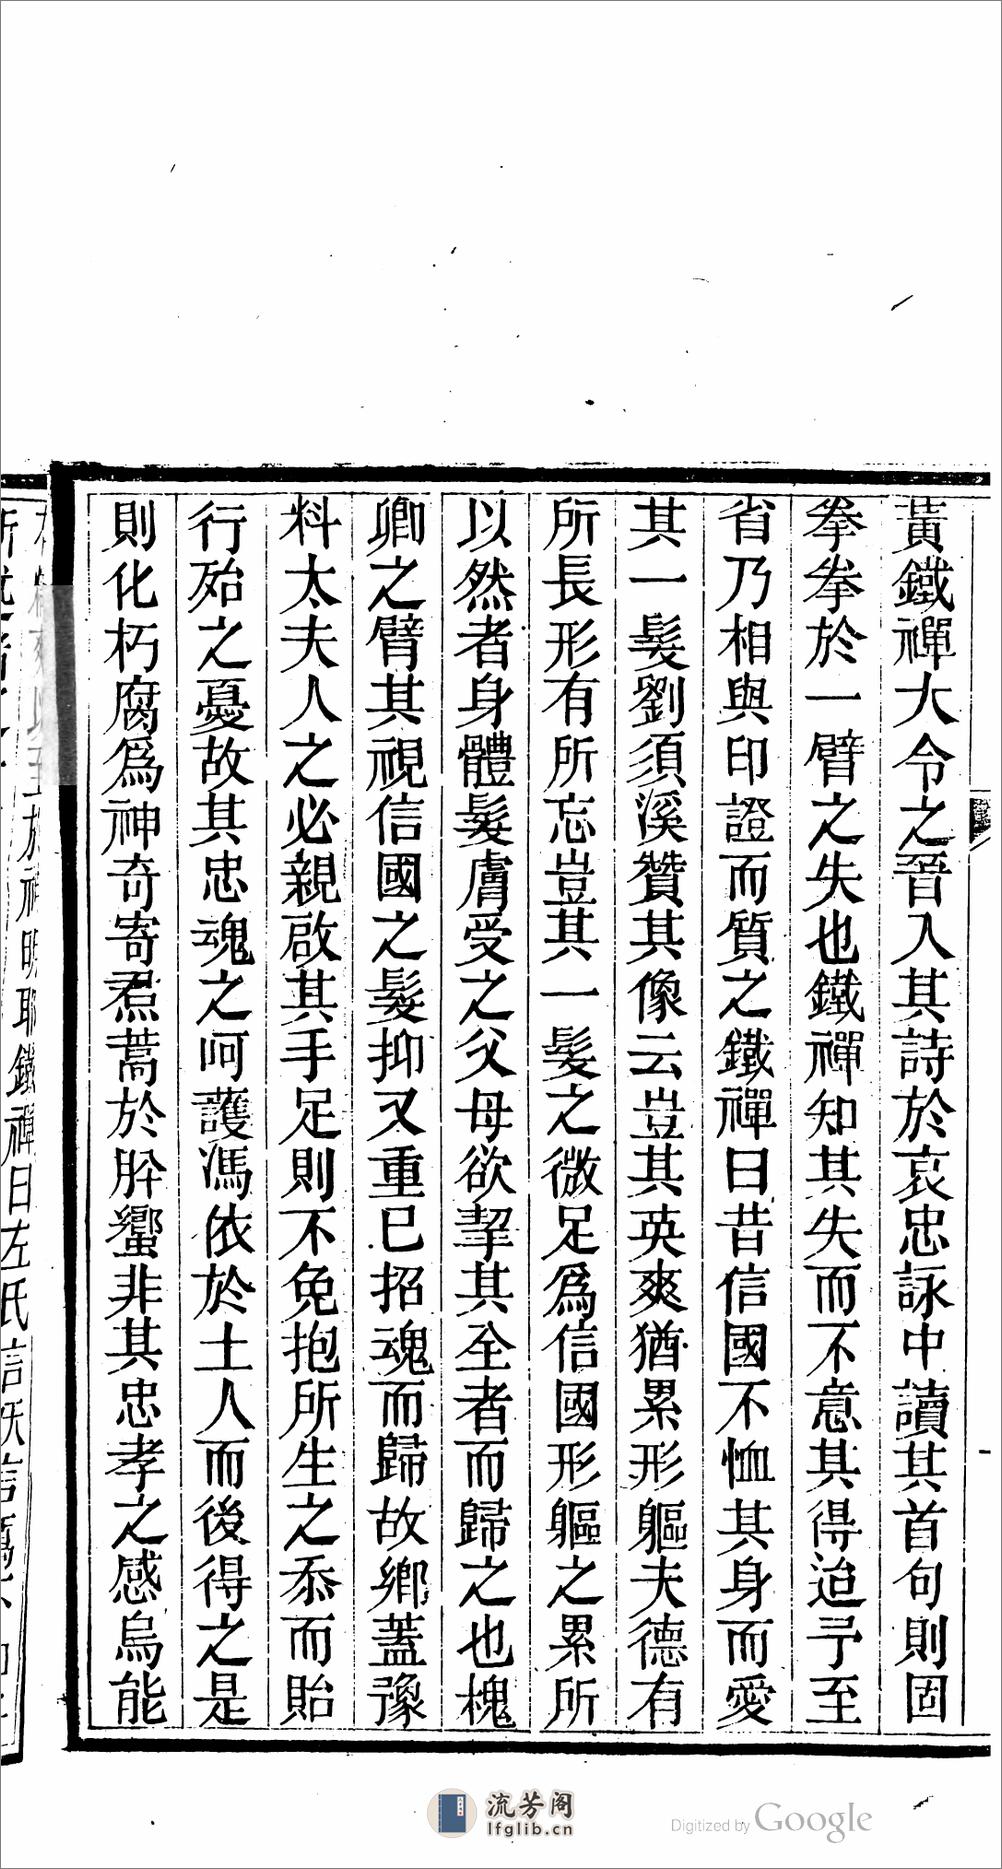 黃鐵禪大令之晉入其詩於哀忠詠中讀其首句則固
拳拳於一臂之失也鐵禪知其失而不意其得迨予至
省乃相與印證而質之鐵禪曰昔信國不恤其身而愛
其一髮劉須溪贊其像云豈其英爽猶累形軀夫德有
所長形有所忘豈其一髮之微足爲信國形軀之累所
以然者身體髮膚受之父母欲挈其全者而歸之也槐
卿之臂其視信國之髮抑又重已招魂而歸故鄉蓋豫
料太夫人之必親啟其手足則不免抱所生之忝而貽
行殆之憂故其忠魂之呵護馮依於土人而後得之是
則化朽腐爲神奇寄焄蒿於肸蠁非其忠孝之感烏能
於神明耶鐵禪曰左氏言
流芳阁
lfglib.cn
Digitized by Google